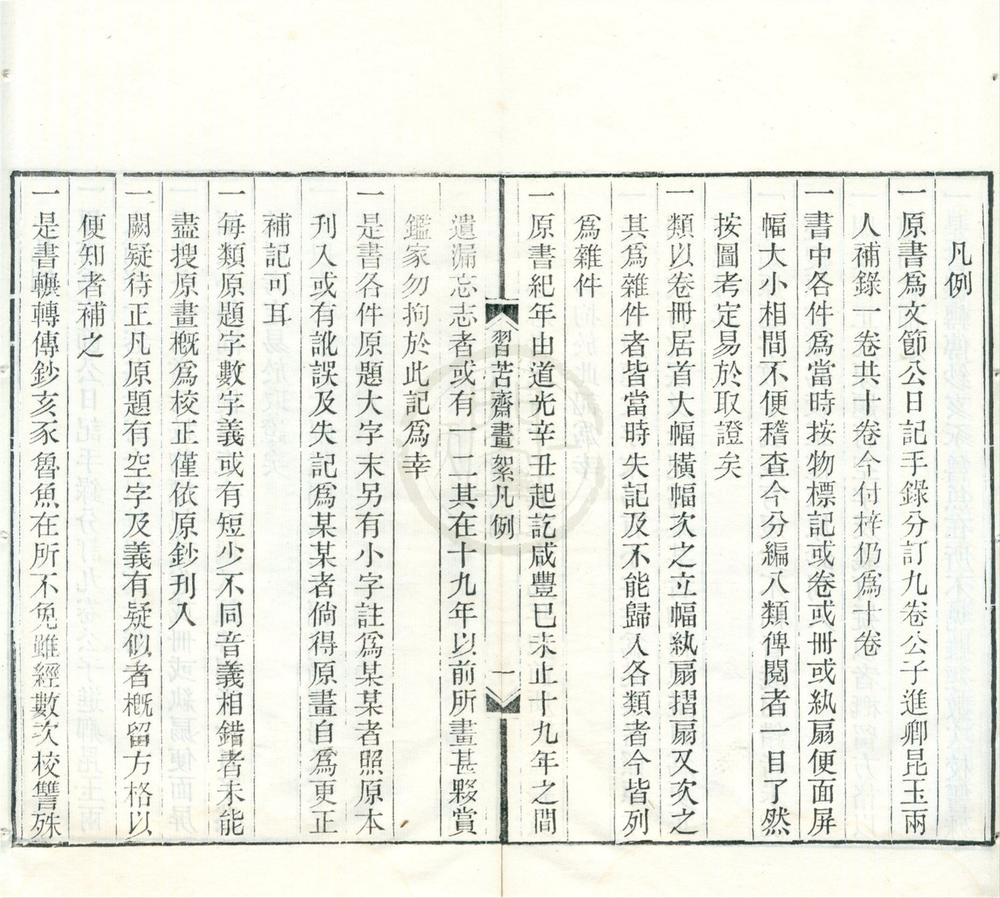 凡例
一原書爲文節公日記手錄分訂九卷公子進卿昆玉兩
人補錄一卷共十卷今付梓仍爲十卷
一書中各件爲當時按物標記或卷或冊或紈扇便面屏
幅大小相間不便稽查今分編八類俾閱者一目了然
按圖考定易於取證矣
一類以卷冊居首大幅橫幅次之立幅紈扇摺扇又次之
其爲雜件者皆當時失記及不能歸入各類者今皆列
爲雜件
一原書紀年由道光辛丑起訖咸豐已未止十九年之間
習苦齋畫絮凡例
一
遺漏忘志者或有一二其在十九年以前所畫甚夥賞
鑑家勿拘於此記爲幸
一是書各件原題大字末另有小字註爲某某者照原本
刊入或有訛誤及失記爲某某者倘得原畫自爲更正
補記可耳
一每類原題字數字義或有短少不同音義相錯者未能
盡搜原畫概爲校正僅依原鈔刊入
一闕疑待正凡原題有空字及義有疑似者概留方格以
便知者補之
一是書輾轉傳鈔亥豕魯魚在所不免雖經數次校讐殊